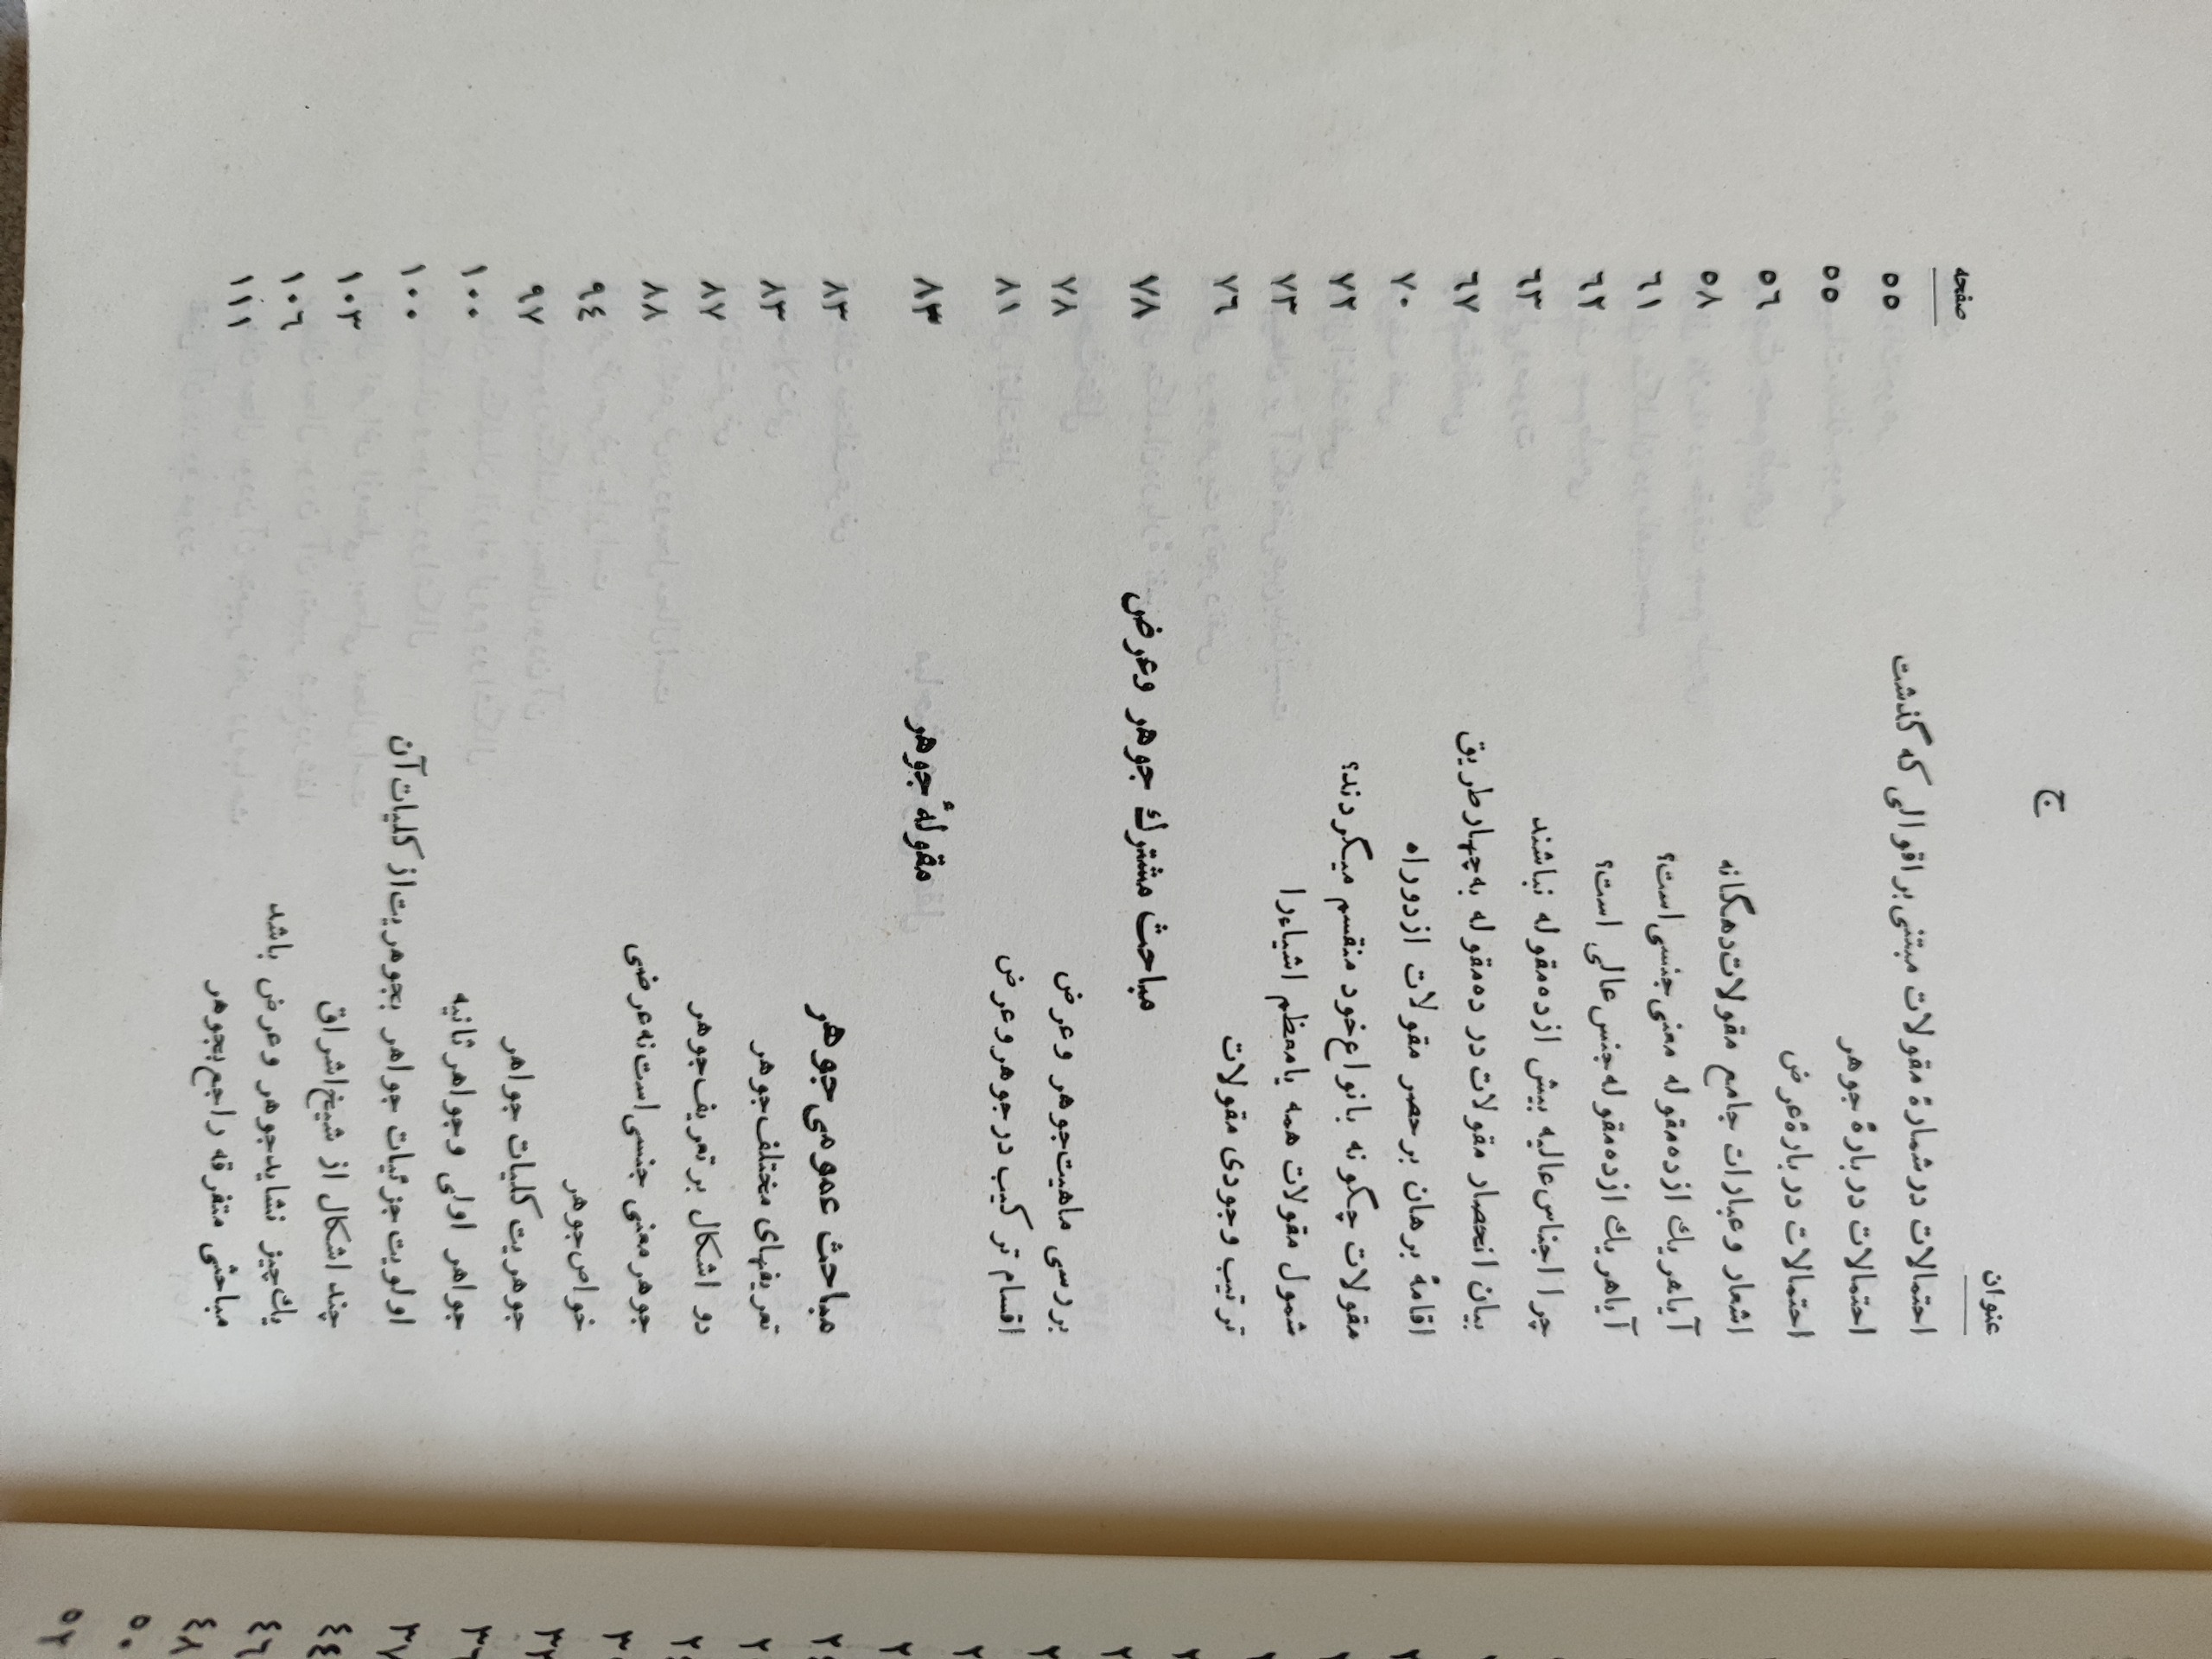 ج
عنوان صفحه
احتمالات در شمارهٔ مقولات مبتنی بر اقوالی که گذشت ٥٥
احتمالات در بارهٔ جوهر ٥٥
احتمالات در بارهٔ عرض ٥٦
اشعار و عبارات جامع مقولات دهگانه ٥٨
آیا هر یك از ده مقوله معنی جنسی است؟ ٦١
آیا هر یك از ده مقوله جنس عالی است؟ ٦٢
چرا اجناس عالیه بیش از ده مقوله نباشند ٦٣
بیان انحصار مقولات در ده مقوله به چهار طریق ٦٧
اقامهٔ برهان بر حصر مقولات از دو راه ٧٠
مقولات چگونه بانواع خود منقسم میگردند؟ ٧٢
شمول مقولات همه یا معظم اشیاء را ٧٣
ترتیب وجودی مقولات ٧٦
مباحث مشترك جوهر و عرض ٧٨
بررسی ماهیت جوهر و عرض ٧٨
اقسام ترکیب در جوهر و عرض ٨١
مقولهٔ جوهر ٨٣
مباحث عمومی جوهر ٨٣
تعریفهای مختلف جوهر ٨٣
دو اشکال بر تعریف جوهر ٨٧
جوهر معنی جنسی است نه عرضی ٨٨
خواص جوهر ٩٤
جوهریت کلیات جواهر ٩٧
جواهر اولی و جواهر ثانیه ١٠٠
اولویت جزئیات جواهر بجوهریت از کلیات آن ١٠٠
چند اشکال از شیخ اشراق ١٠٣
یك چیز نشاید جوهر و عرض باشد ١٠٦
مباحثی متفرقه راجع بجوهر ١١١
٣٧
٤٤
٤٦
٤٨
٥٠
٥٢